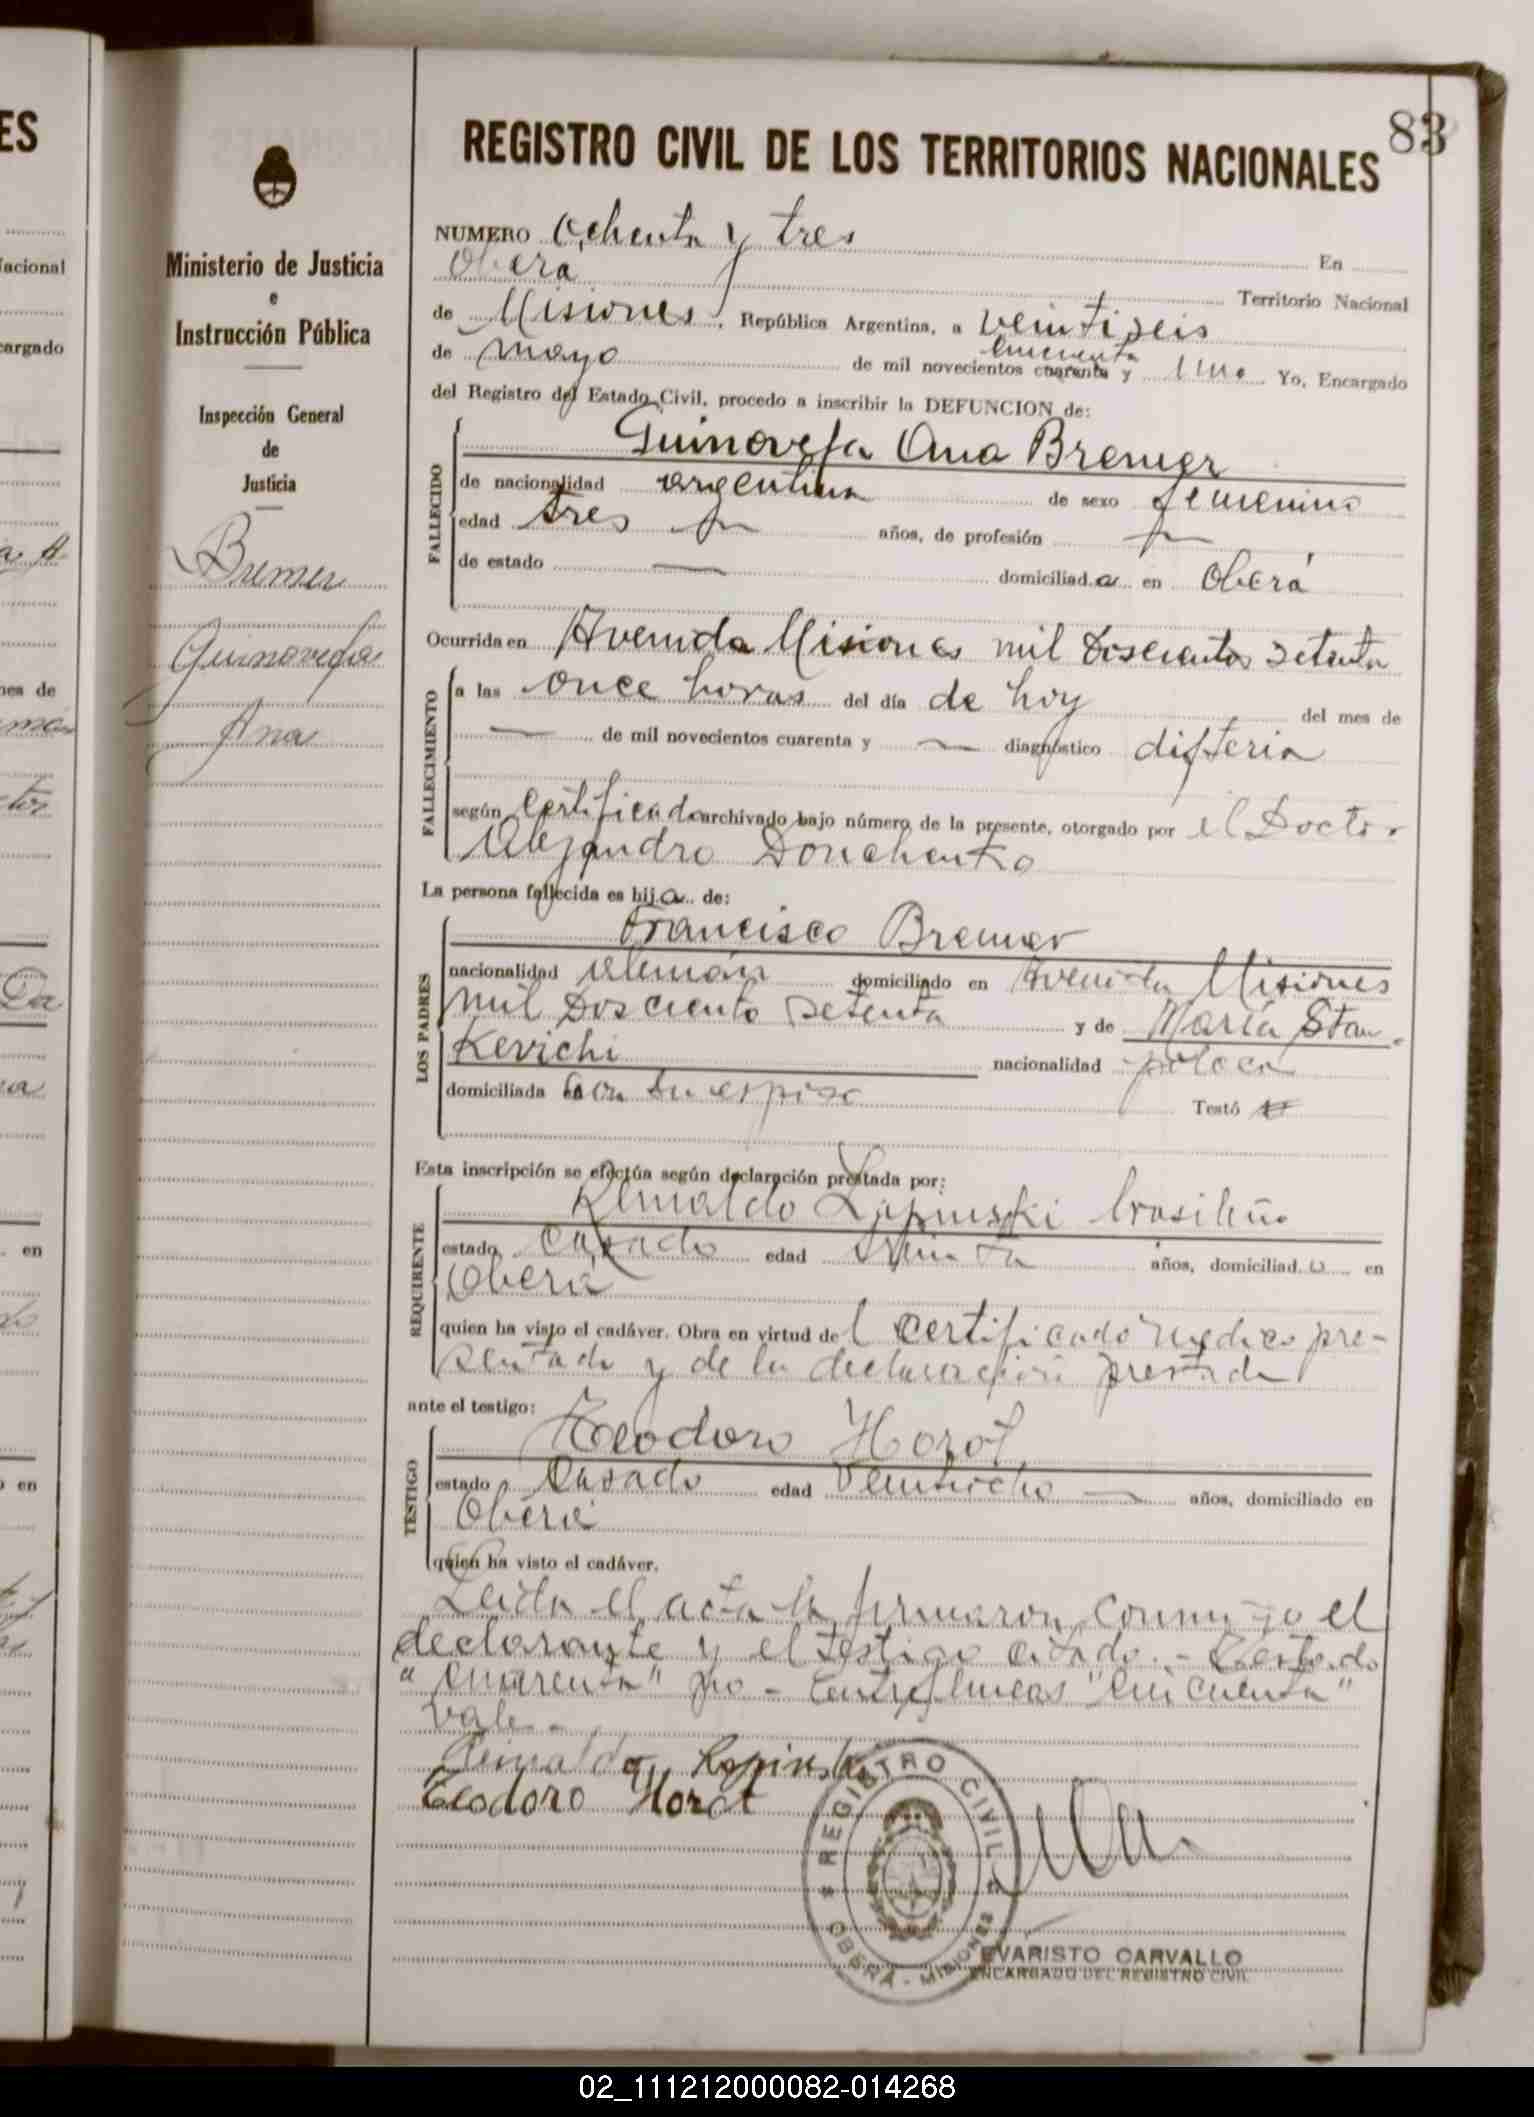 83
REGISTRO CIVIL DE LOS TERRITORIOS NACIONALES
Ministerio de Justicia
e
Instrucción Pública
Inspección General
de
Justicia
Bremer
Guinovefa
Ana
NUMERO Ochenta y tres En
Oberá Territorio Nacional
de Misiones, República Argentina, a veintiseis
cincuenta
de mayo de mil novecientos cuarenta y uno Yo, Encargado
del Registro del Estado Civil, procedo a inscribir la DEFUNCION de:
FALLECIDO
Guinovefa Ana Bremer
de nacionalidad argentina de sexo femenino
edad tres años, de profesión
de estado — domiciliad.a en Oberá
Ocurrida en Avenida Misiones mil doscientos setenta
FALLECIMIENTO
a las once horas del día de hoy del mes de
— de mil novecientos cuarenta y — diagnóstico difteria
según Certificado archivado bajo número de la presente, otorgado por el Doctor
Alejandro Donchenko
La persona fallecida es hij.a de:
LOS PADRES
Francisco Bremer
nacionalidad alemán domiciliado en Avenida Misiones
mil Doscientos setenta y de María Stan-
Kevichi nacionalidad polaca
domiciliada con su esposo Testó
Esta inscripción se efectúa según declaración prestada por:
REQUIRENTE
Reinaldo Lapinski brasileño
estado casado edad treinta años, domiciliad.o en
Oberá
quien ha visto el cadáver. Obra en virtud del certificado medico pre-
sentado y de la declaración prestada
ante el testigo:
TESTIGO
Teodoro Horot
estado Casado edad veintiocho — años, domiciliado en
Oberá
quien ha visto el cadáver.
Leida el acta la firmaron conmigo el
declarante y el testigo citado.- Testado
"cuarenta" no - Entrelineas "cincuenta"
vale.-
Reinaldo Lapinski
Teodoro Horot
REGISTRO CIVIL
OBERÁ - MISIONES
EVARISTO CARVALLO
ENCARGADO DEL REGISTRO CIVIL
02_111212000082-014268